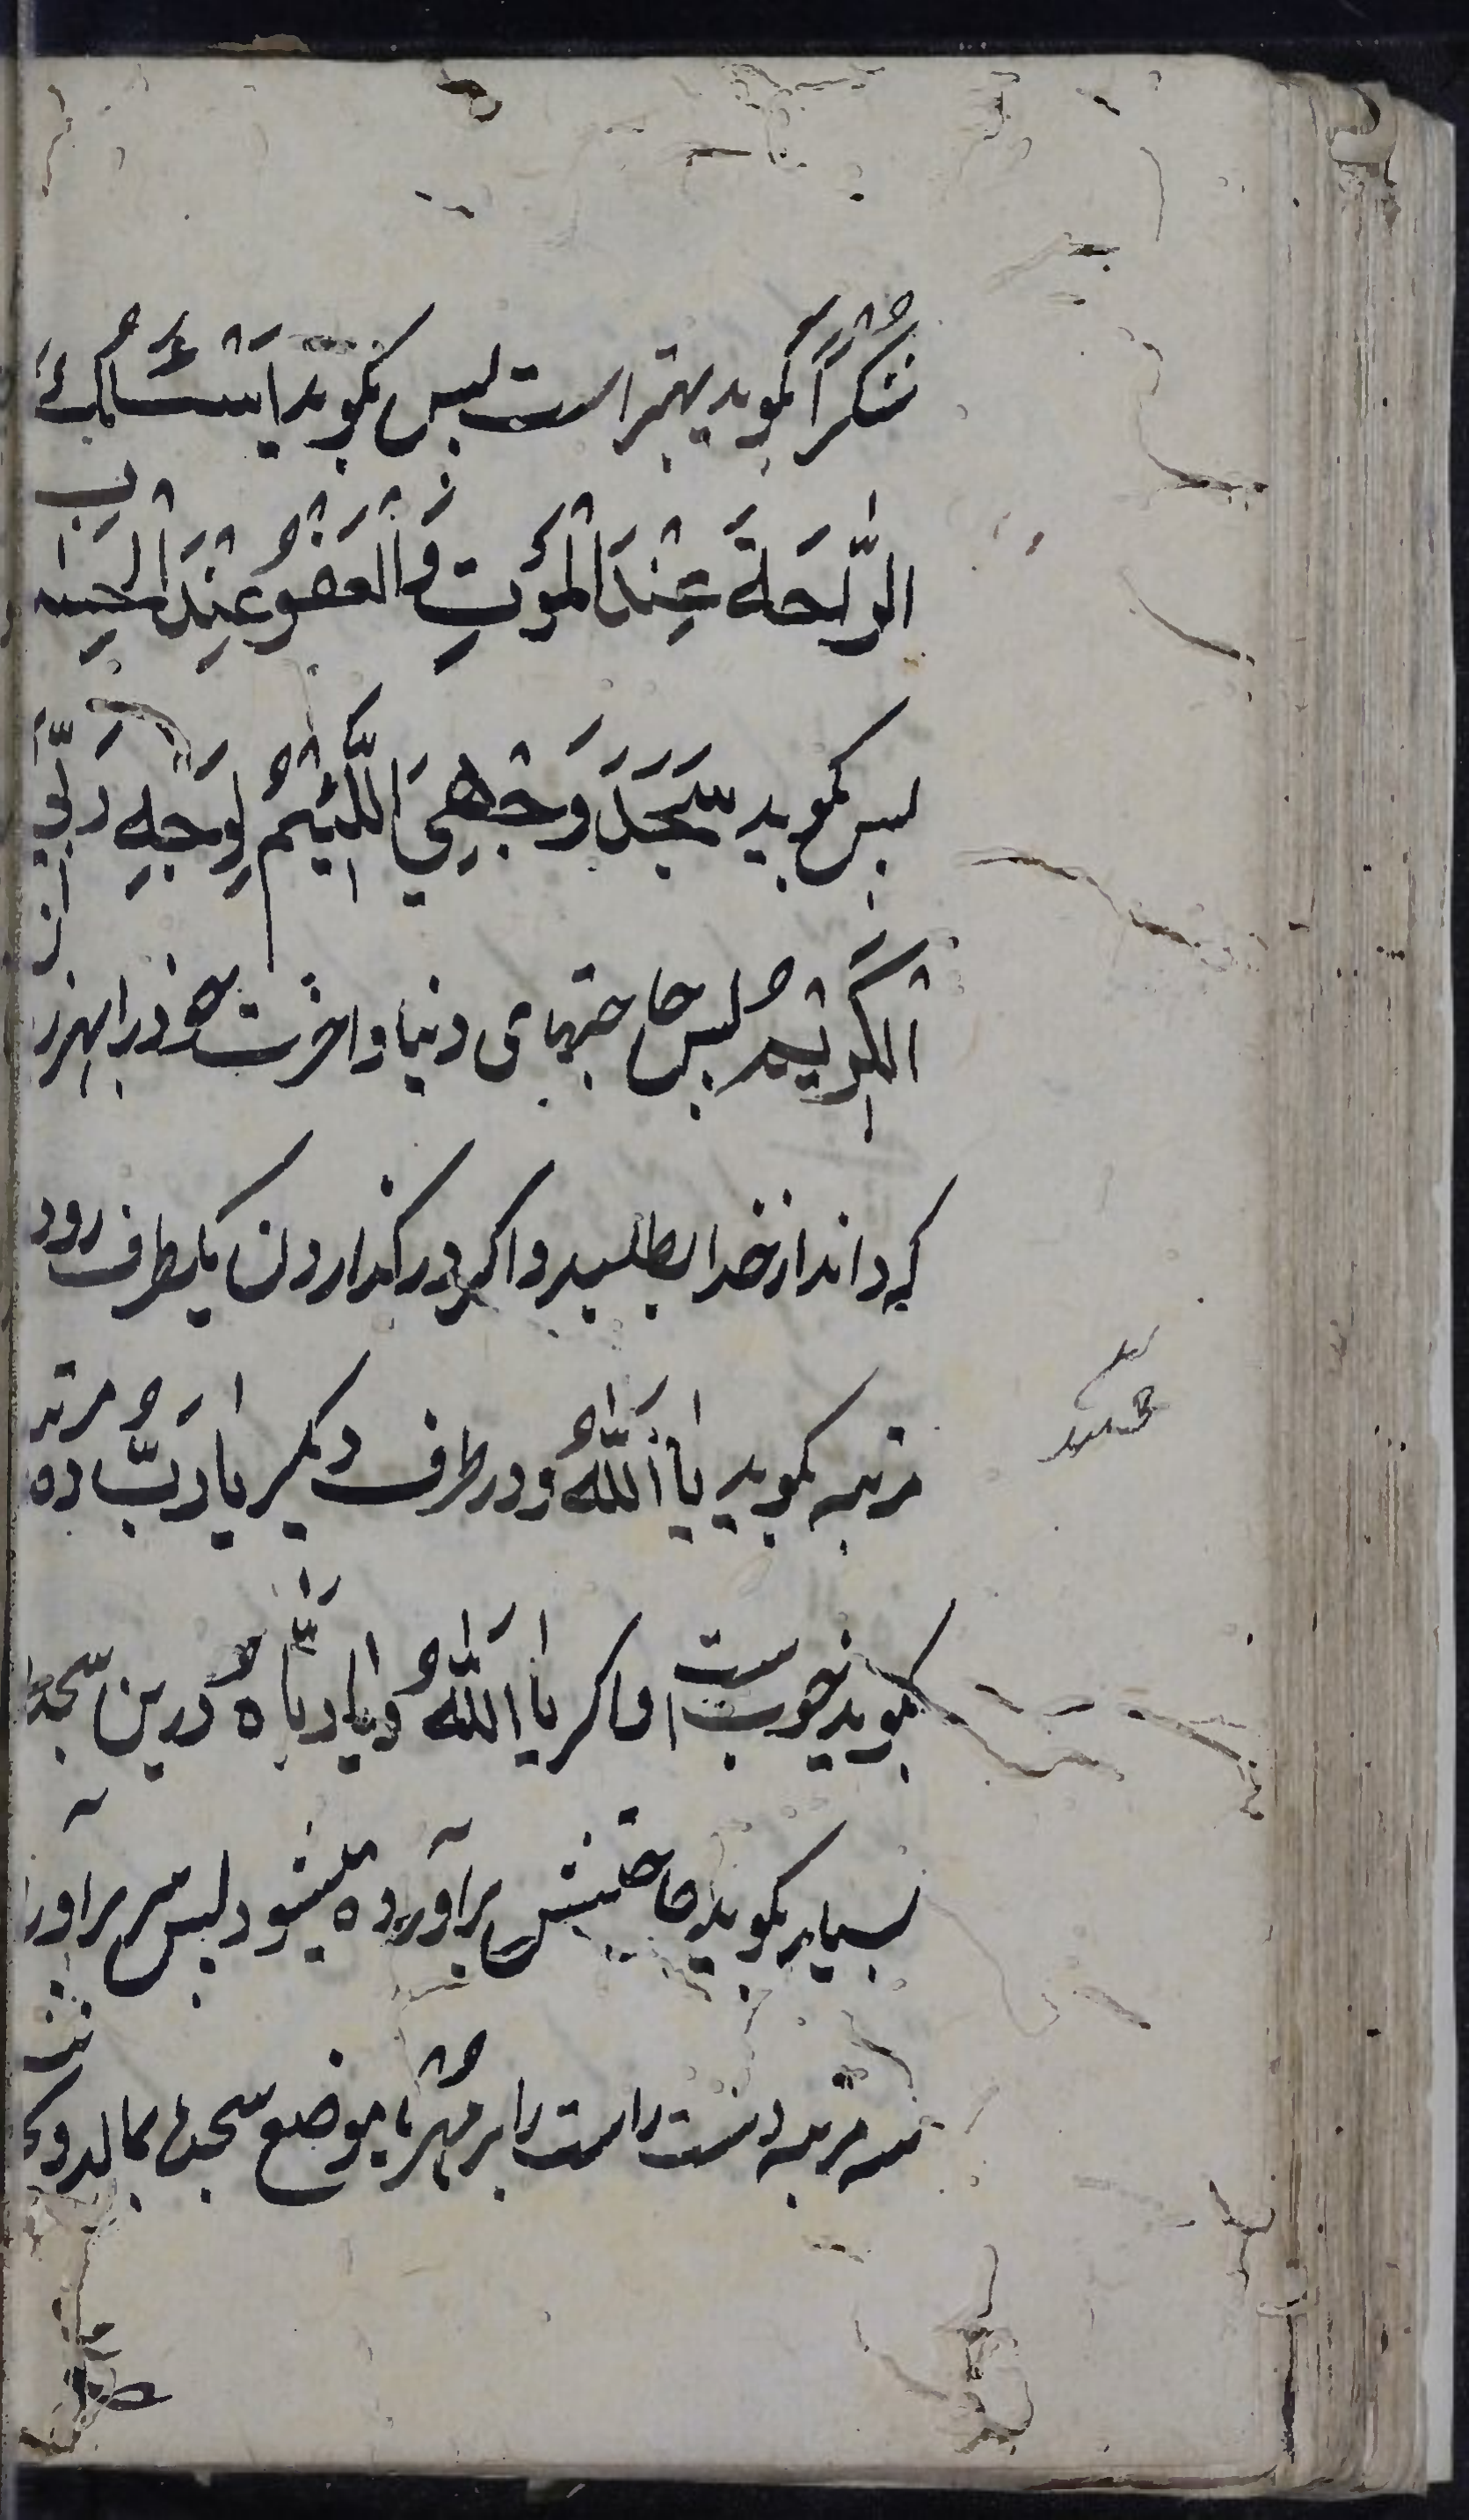 شُكْراً بگوید بهتر است پس بگوید اَسْئَلُكَ
الرَّاحَةَ عِنْدَ الْمَوْتِ وَ الْعَفْوَ عِنْدَ الْحِسٰابِ
پس بگوید سَجَدَ وَجْهِيَ اللَّئٖيْمُ لِوَجْهِ رَبِّيَ
الْكَرٖيْمِ پس حاجتهای دنیا و اخرت خود را بهر زبان
که داند از خدا بطلبد و اگر در گذاردن یکطرف رو ده
مرتبه بگوید یٰا اَللّٰهُ و در طرف دیگر یٰا رَبُّ ده مرتبه
بگوید خوبست و اگر یٰا اَللّٰهُ و یٰا رَبّٰاهُ درین سجده
بسیار بگوید حاجتش برآورده میشود پس سر برآورد
سه مرتبه دست راست را بر مُهْر یا موضع سجده بمالد و